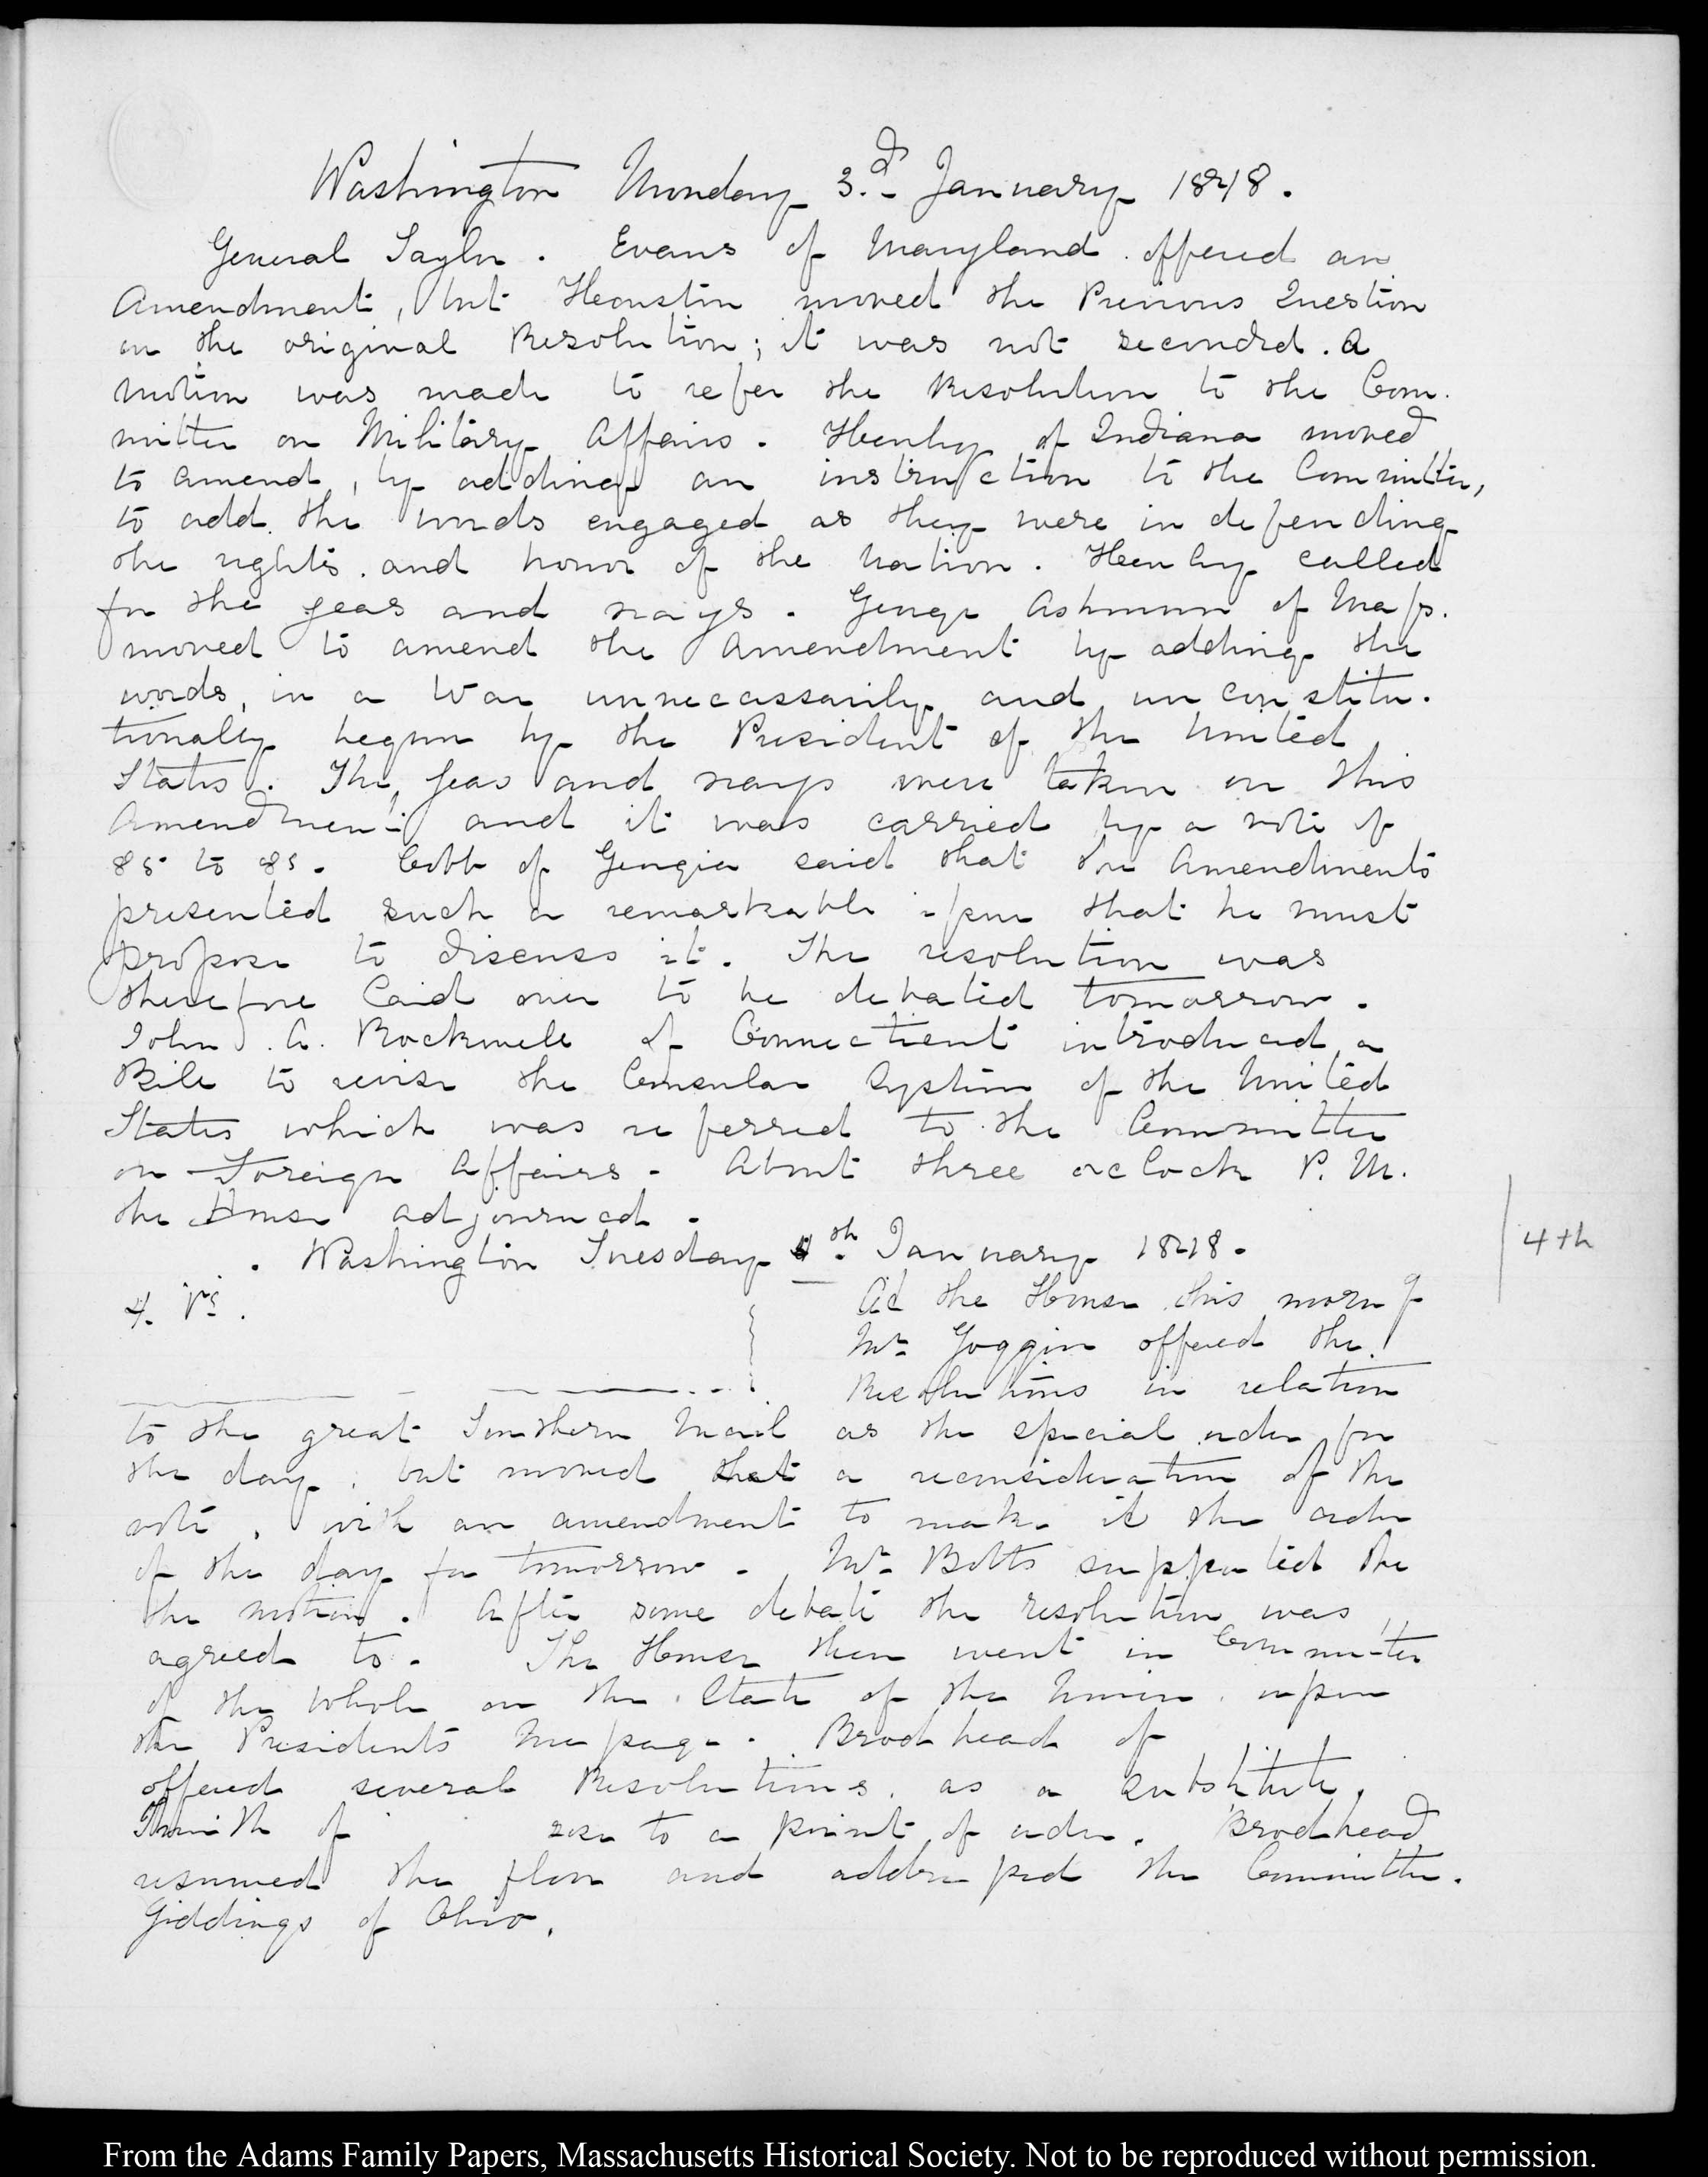 Washington Monday 3.d January 1848.
General Taylor. Evans of Maryland offered an
Amendment, but Houston moved the Previous Question
on the original Resolution; it was not seconded. A
motion was made to refer the Resolution to the Com-
mittee on Military Affairs. Henley of Indiana moved
to amend, by adding an instruction to the Committee,
to add the words engaged as they were in defending
the rights and honor of the Nation. Henley called
for the yeas and nays. George Ashmun of Mass.
moved to amend the Amendment by adding the
words, in a War unnecassarily and unconstitu-
tionally begun by the President of the United
States. The yeas and nays were taken on this
Amendment and it was carried by a vote of
85 to 81. Cobb of Georgia said that the Amendments
presented such a remarkable issue that he must
propose to discuss it. The resolution was
therefore laid over to be debated tomorrow.
John A. Rockwell of Connecticut introduced a
Bill to revise the Consular System of the United
States which was referred to the Committee
on Foreign Affairs. About three oclock P. M.
the House adjourned.
Washington Tuesday 4th. January 1848.
4th
4. V:
At the House this morng
Mr. Goggin offered the
Resolutions in relation
to the great Southern Mail as the special order for
the day, but moved that a reconsideration of the
vote, with an amendment to make it the order
of the day for tomorrow. Mr. Botts supported the
the motion. After some debate the resolution was
agreed to. The House then went in Committee
of the Whole on the State of the Union upon
the Presidents Message. Brodhead of
offered several Resolutions as a substitute.
of rose to a point of order. Brodhead
resumed the floor and addressed the Committee.
Giddings of Ohio.
From the Adams Family Papers, Massachusetts Historical Society. Not to be reproduced without permission.